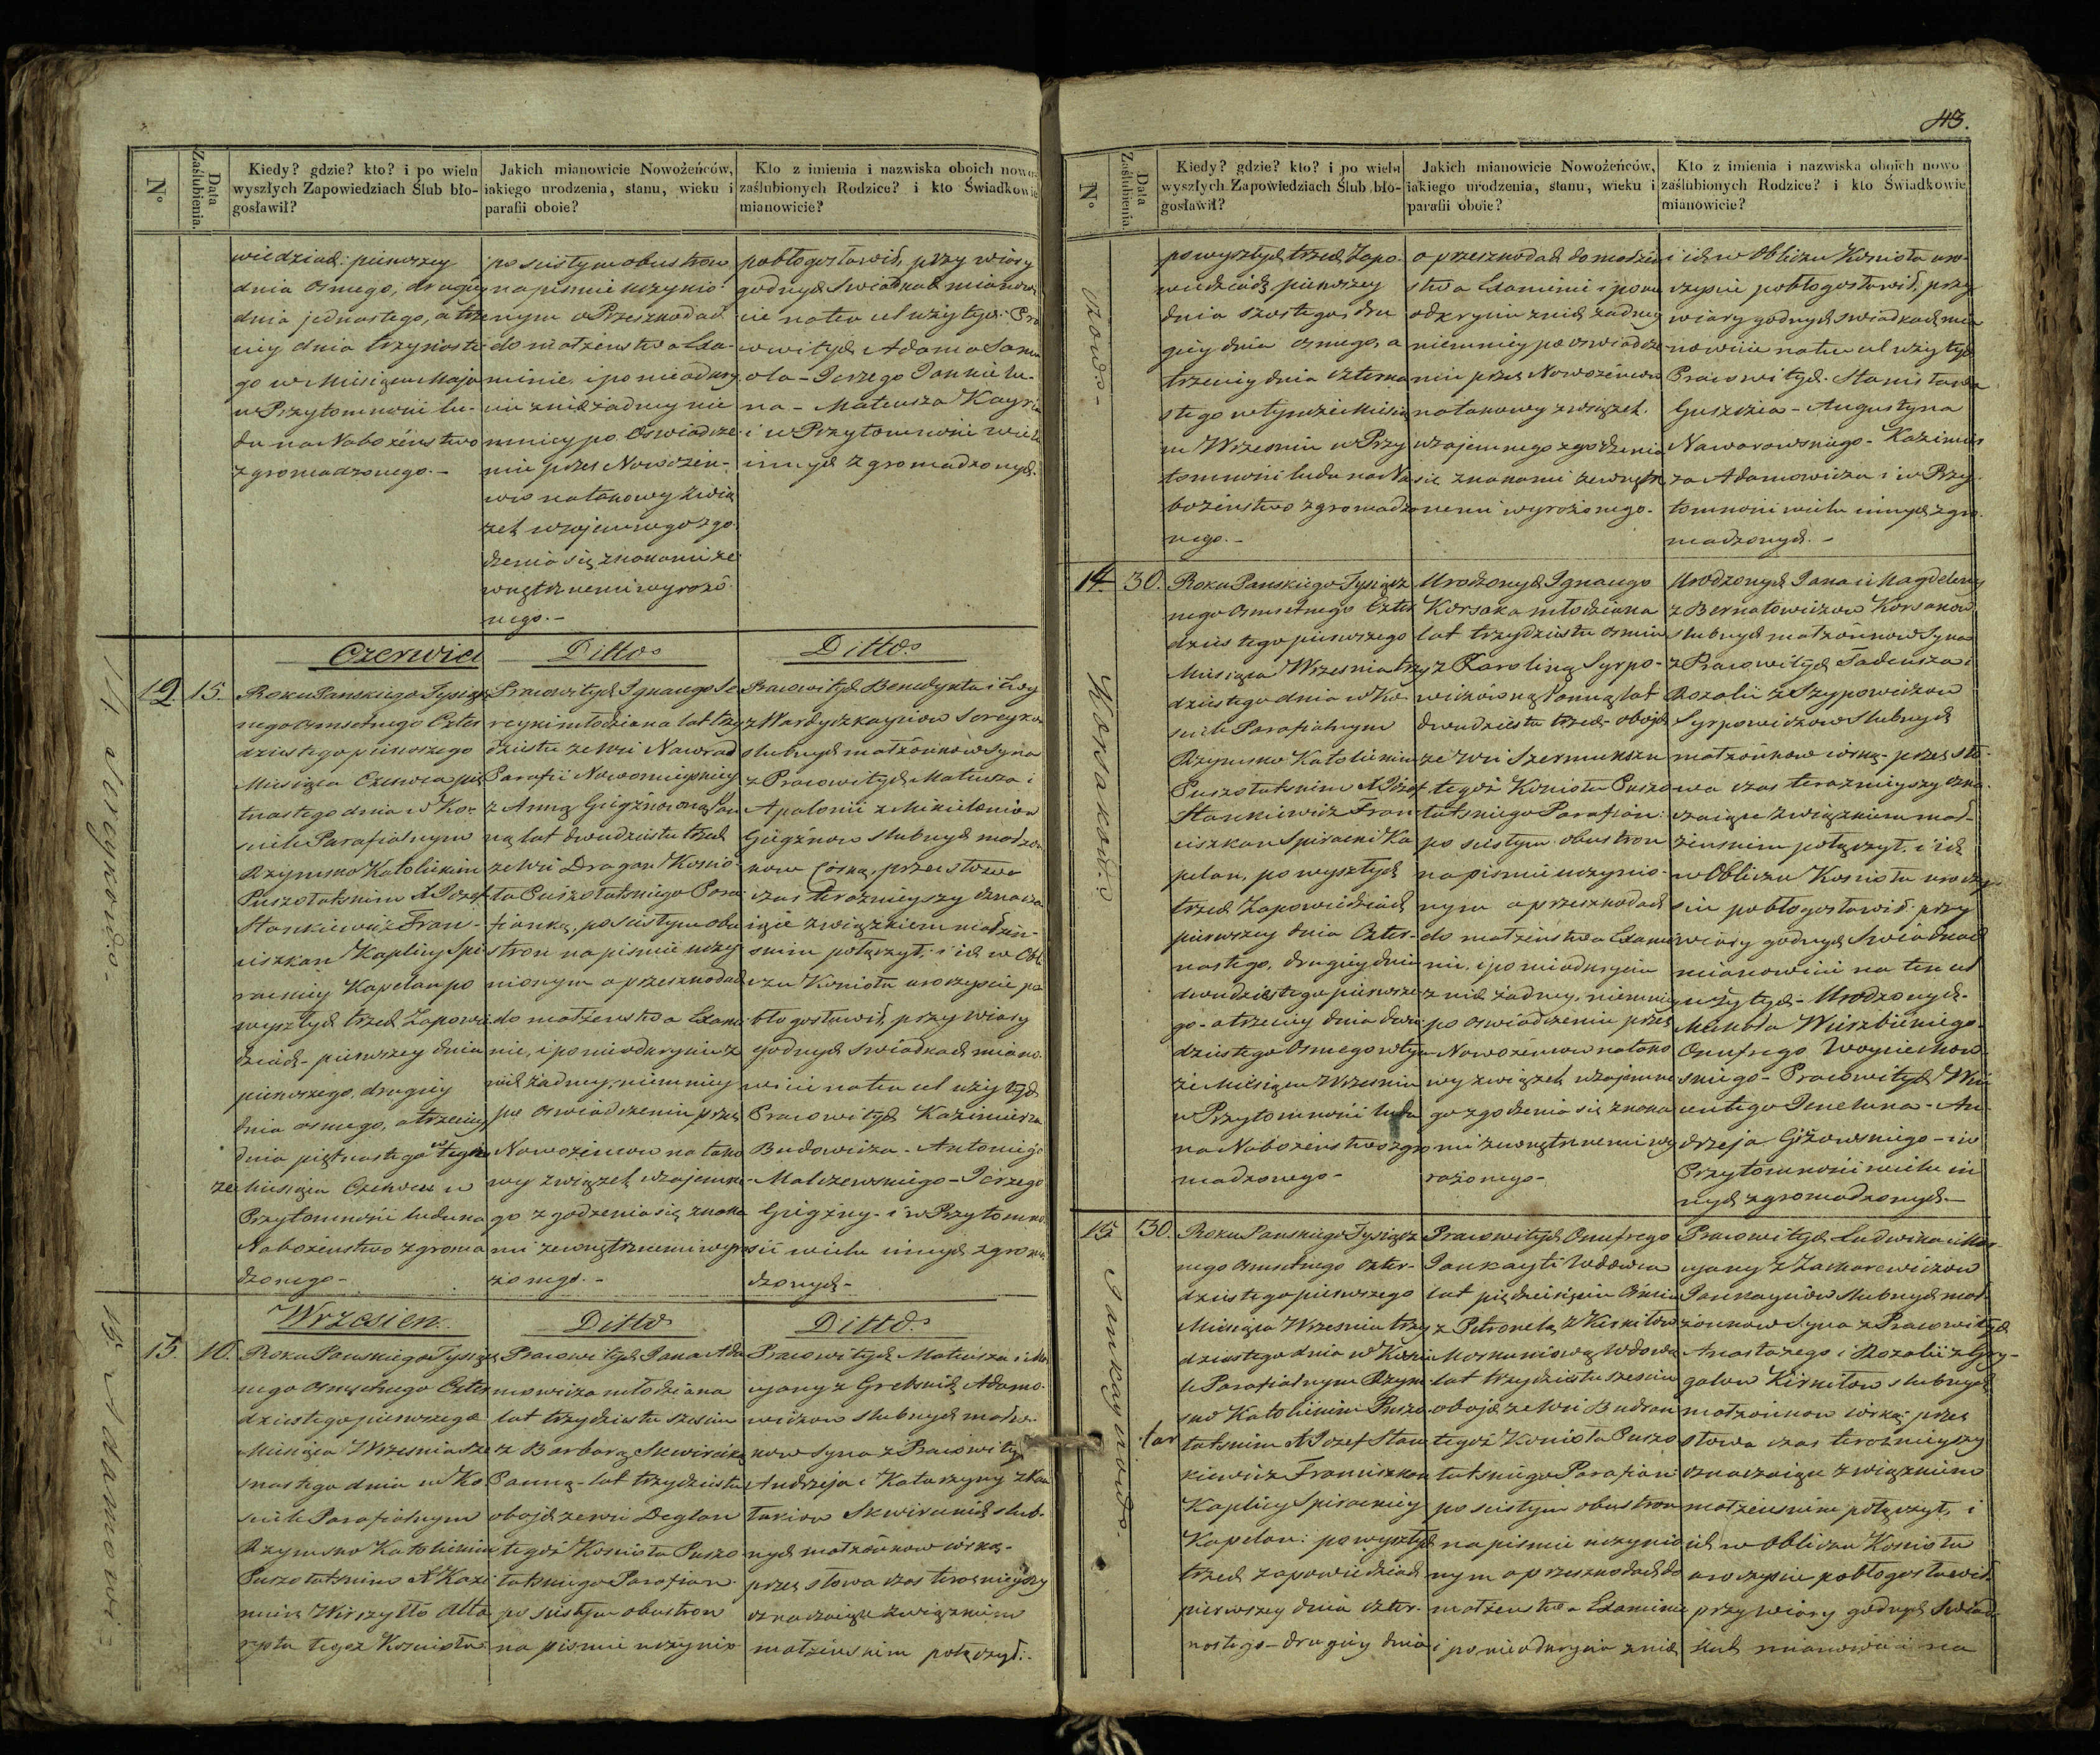 N°
Data Zaślubienia.
Kiedy? gdzie? kto? i po wielu
wyszłych Zapowiedziach Ślub bło-
gosławił?
Jakich mianowicie Nowożeńców,
iakiego urodzenia, stanu, wieku i
parafii oboie?
Kto z imienia i nazwiska oboich nowo
zaślubionych Rodzice? i kto Świadkowie
mianowicie?
wiedziach: pierwszey
dnia osmego, drugiey
dnia jednastego, a trze
ciey dnia trzynaste
go w Miesiącu Maju
w Przytomności lu-
du na Nabożeństwo
zgromadzonego.-
po scistym obustron
na pismie uczynio
nym o Przeszkodach
do małżenstwa Exa-
minie, i po nieodkry
ciu z nich żadney nie
mniey po Oswiadcze
niu przez Nowożeń-
ców na takowy Zwią
zek wzajemnego zgo
dzenia się znakami ze
wnętrznemi wyrażo
nego.-
pobłogosławił, przy wiary
godnych Swiadkach mianowi
cie na ten cel użytych: Pra
cowitych Adama
Jerzego
na - Mateusza
i w Przytomności wielu
innych zgromadzonych.
Czerwiec
Ditto
Ditto
12.
15.
Roku Panskiego Tysiącz
nego Osmsetnego Czter
dziestego pierwszego
Miesiąca Czerwca pię
tnastego dnia w Ko-
sciele Parafialnym
Rzymsko Katolickim
Puszołatskim X Jozef
Stankiewicz Fran-
ciszkan Kaplicy Spi
rackiey Kapelan po
wyszłych trzech Zapowie
dziach - pierwszey dnia
pierwszego, drugiey
dnia osmego, a trzeciey
dnia piętnastego w tym
że Miesiącu Czerwcu w
Przytomności ludu na
Nabożeństwo zgroma
dzonego-
Pracowitych Ignacego Se
reyki młodziana lat trzy
dziestu ze Wsi Nawrad
Parafii Nowomieyskiey
z Anną Panną
lat dwudziestu trzech
ze Wsi Dragan Koscio
ła Puszołatskiego Para
fianką, po scistym obu
stron na pismie uczy
nionym o przeszkodach
do małżenstwa Exami
nie, i po nieodkryciu z
nich żadney, niemniey
po oswiadczeniu przez
Nowożencow na tako
wy związek wzajemne
go zgodzenia się znaka
mi zewnętrznemi wyra
żonego.-
Pracowitych Benedykta i
slubnych małżonkow Syna
z Pracowitych Mateusza i
Apolonii z
slubnych małżon
kow Corką, przez słowa
czas teraznieyszy oznacza
iące związkiem małżen-
skim połączył, i ich w Obli
czu Koscioła uroczyscie po
błogosławił, przy wiary
godnych Swiadkach miano-
wicie na ten cel użytych
Pracowitych Kazimierza
Budowicza - Antoniego
Malczewskiego - Jerzego
i w Przytomno
sci wielu innych zgroma
dzonych-
Wrzesien
Ditto
Ditto
13.
16.
Roku Panskiego Tysiącz
nego Osmsetnego Czter
dziestego pierwszego
Miesiąca Wrzesnia sze
snastego dnia w Ko
sciele Parafialnym
Rzymsko Katolickim
Puszołatskim X Kazi
mierz Wirszyłło Alta
rysta tegoż Koscioła
Pracowitych Jana Ada
mowicza młodziana
lat trzydziestu szesciu
z Barbarą
Panną - lat trzydziestu
obojch ze wsi Deglan
tegoż Koscioła Puszo
łatskiego Parafian
po scistym obustron
na pismie uczynio
Pracowitych Mateusza i Mar
cyany z Adamo-
wiczow slubnych małżon
kow Syna z Pracowitych
Andrzeja i Katarzyny
slub-
nych małżonkow corką-
przez słowa czas teraznieyszy
oznaczaiące związkiem
małżenskim połączył.-
13. Adamowi-
43.
N°
Data Zaślubienia.
Kiedy? gdzie? kto? i po wielu
wyszłych Zapowiedziach Ślub bło-
gosławił?
Jakich mianowicie Nowożeńców,
iakiego urodzenia, stanu, wieku i
parafii oboie?
Kto z imienia i nazwiska oboich nowo
zaślubionych Rodzice? i kto Świadkowie
mianowicie?
po wyszłych trzech Zapo-
wiedziach pierwszey
dnia szostego, dru
giey dnia osmego, a
trzeciey dnia czterna
stego w tymże Miesią
cu Wrzesniu w Przy
tomności ludu na Na
bożeństwo zgromadzo
nego.-
o przeszkodach do małżeń
stwa Examinie i po nie
odkryciu z nich żadney
niemniey po oswiadcze
niu przez Nowożeńcow
na takowy związek
wzajemnego zgodzenia
się znakami zewnętrz
nemi wyrażonego.-
i ich w Obliczu Koscioła uro-
czyscie pobłogosławił, przy
wiary godnych swiadkach mia
nowicie na ten cel użytych
Pracowitych. Stanisława
Guszcza - Augustyna
Nawarowskiego - Kazimier
za Adamowicza i w Przy
tomności wielu innych zgro-
madzonych.-
14.
30.
Korsakow.
Roku Panskiego Tysiącz
nego Osmsetnego Czter
dziestego pierwszego
Miesiąca Wrzesnia trzy
dziestego dnia w Ko-
sciele Parafialnym
Rzymsko Katolickim
Puszołatskim X Jozef
Stankiewicz Fran
ciszkan Spiracki Ka
pelan, po wyszłych
trzech Zapowiedziach
pierwszey dnia Czter-
nastego, drugiey dnia
dwudziestego pierwsze
go - a trzeciey dnia dwu
dziestego osmego w tym
że Miesiącu Wrzesniu
w Przytomności ludu
na Nabożeństwo zgro
madzonego-
Urodzonych Ignacego
Korsaka młodziana
lat trzydziestu osmiu
z Karoliną Syrpo-
wiczowną Panną lat
dwudziestu trzech - obojch
ze Wsi Szermukszn
tegoż Koscioła Puszo
łatskiego Parafian:
po scistym obustron
na pismie uczynio-
nym o przeszkodach
do małżeństwa Exami
nie, i po nieodkryciu
z nich żadney, niemniey
po oswiadczeniu przez
Nowożencow na tako
wy związek wzajemne
go zgodzenia się znaka
mi zewnętrznemi wy
rażonego-
Urodzonych Jana i Magdaleny
z Bernatowiczow Korsakow
slubnych małżonkow Syna
z Pracowitych Tadeusza i
Rozalii z Szypowiczow
Syrpowiczow Slubnych
małżonkow corką - przez sło-
wa czas teraznieyszy ozna-
czaiące Związkiem mał-
żenskim połączył, i ich
w Obliczu Koscioła uroczy-
scie pobłogosławił przy
wiary godnych Swiadkach
mianowicie na ten cel
użytych - Urodzonych-
Michała Wierzbickiego-
Onufrego Woyciechow
skiego - Pracowitych Win
centego - An-
drzeja Giżowskiego - i w
Przytomności wielu in
nych zgromadzonych.-
15
30.
Jankaynow.
Roku Panskiego Tysiącz
nego Osmsetnego czter-
dziestego pierwszego
Miesiąca Wrzesnia trzy
dziestego dnia w Koscie
le Parafialnym Rzym-
sko Katolickim Puszo-
łatskim X Jozef Stan
kiewicz Franciszkan
Kaplicy Spirackiey
Kapelan: po wyszłych
trzech zapowiedziach
pierwszey dnia czter-
nastego - drugiey dnia
Pracowitych Onufrego
Jankayti Wdowca
lat pięciudziesięciu Osmiu
z Petronelą z Kirkiłow
Wdową
lat trzydziestu szesciu
obojch ze Wsi Budran
tegoż Koscioła Puszo
łatskiego Parafian
po scistym obustron
na pismie uczynio
nym o przeszkodach do
małżenstwa Examinie
i po nieodkryciu z nich
Pracowitych Ludwika i Mar
cyany z Zacharewiczow
Jankaynow slubnych mał
żonkow Syna z Pracowitych
Anastazego i Rozalii z Gry-
galow Kirkiłow slubnych
małżonkow corką: przez
słowa czas teraznieyszy
oznaczaiące związkiem
małżenskim połączył, i
ich w Obliczu Koscioła
uroczyscie pobłogosławił
przy wiary godnych Swiad
kach mianowicie na